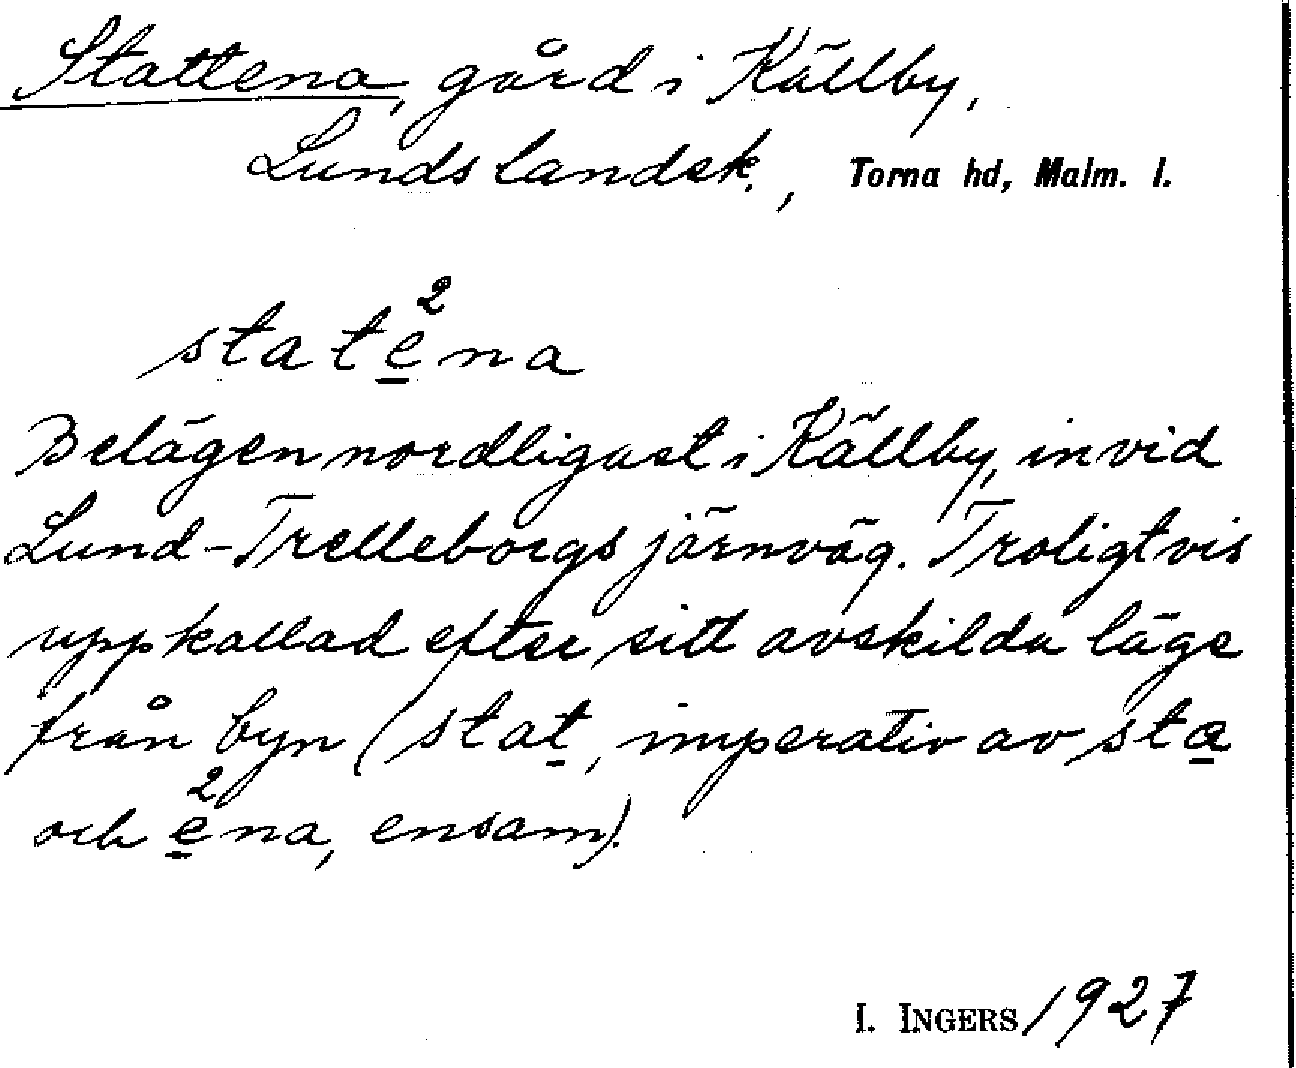 Stattena, gård i Källby,
Lunds landsk., Torna hd, Malm. l.
statè̱²na
Belägen nordligast i Källby, invid
Lund-Trelleborgs järnväg. Troligtvis
uppkallad efter sitt avskilda läge
från byn (stat̲, imperativ av sta̲
och è̱²na, ensam).
I. INGERS 1927